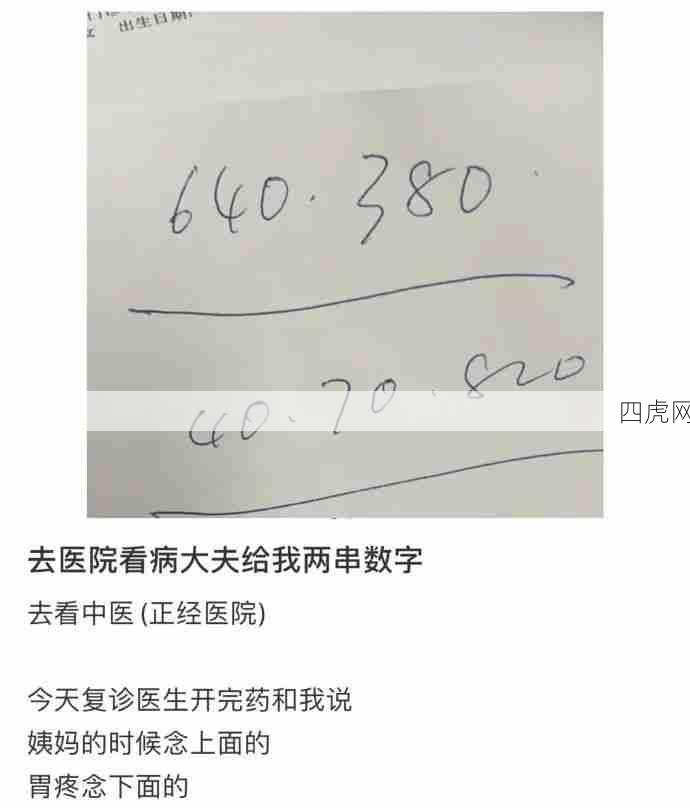 出生日期:
640.380.
40.70.820
四虎网
去医院看病大夫给我两串数字
去看中医(正经医院)
今天复诊医生开完药和我说
姨妈的时候念上面的
胃疼念下面的